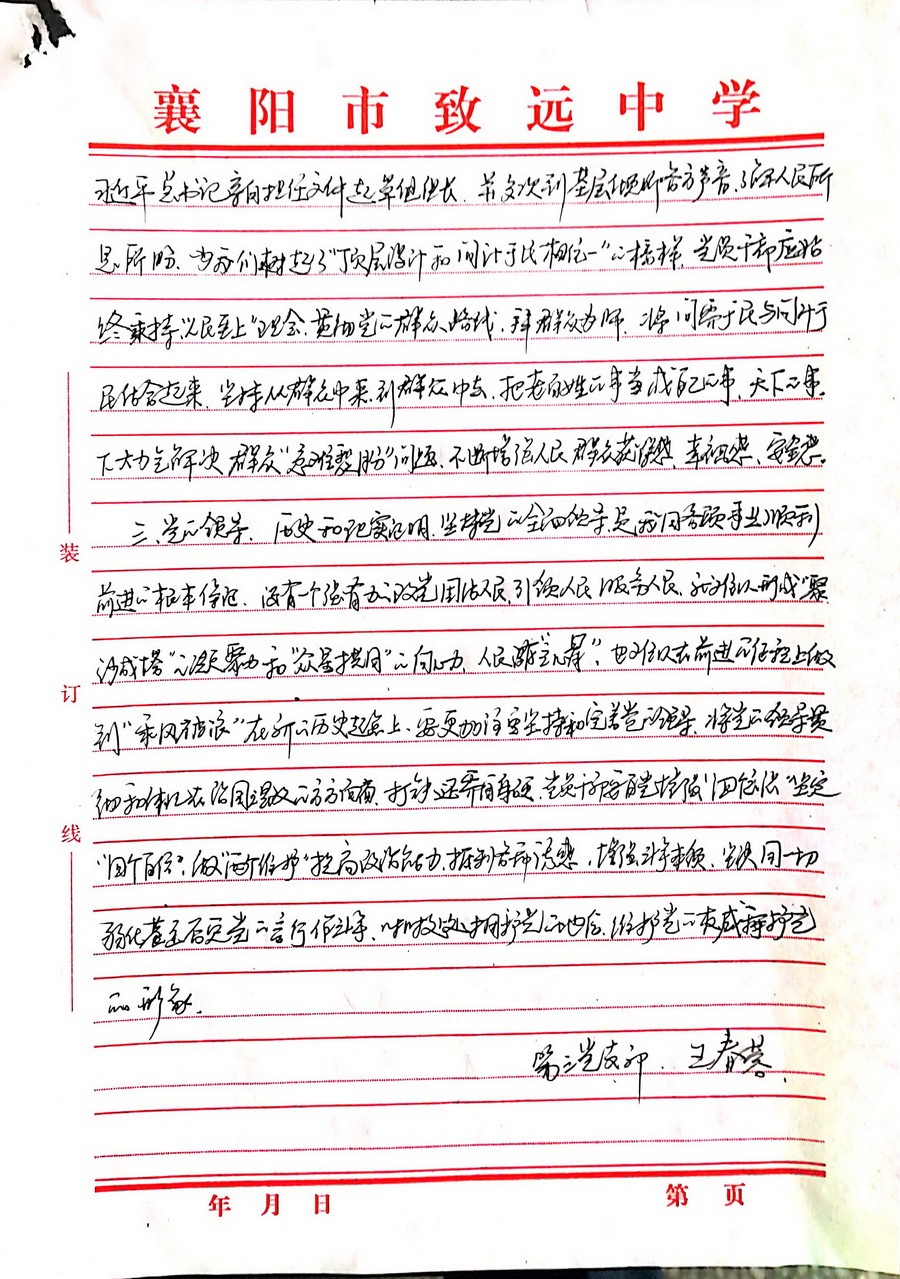 襄阳市致远中学
习近平总书记亲自担任文件起草组组长、并多次到基层倾听各方声音、了解人民所
思所盼、为我们树起了"顶层设计和问计于民相统一"的榜样、党员干部应始
终秉持"人民至上"理念、贯彻党的群众路线、拜群众为师、将问需于民与问计于
民结合起来、坚持从群众中来到群众中去、把老百姓的事当成自己的事、天下的事。
下大力气解决群众"急难愁盼"问题、不断增强人民群众获得感、幸福感、安全感。
三、党的领导、历史和现实证明、坚持党的全面领导是我国各项事业顺利
前进的根本保证、没有一个强有力的政党团结人民、引领人民服务人民、就难以形成"聚
沙成塔"的凝聚力和"众星拱月"的向心力、人民也难以在前进的征程上做
到"乘风破浪"在新的历史起点上、要更加注重坚持和完善党的领导、将党的领导贯
彻和体现在治国理政的方方面面、打铁还需自身硬、党员干部要自觉增强"四个意识"坚定
"四个自信"、做到"两个维护"提高政治能力、增强斗争本领、坚决同一切
弱化甚至否定党的言行作斗争、以拥护党的地位、维护党的权威
的形象。
第三党支部、王春蓉
装
订
线
年 月 日
第 页